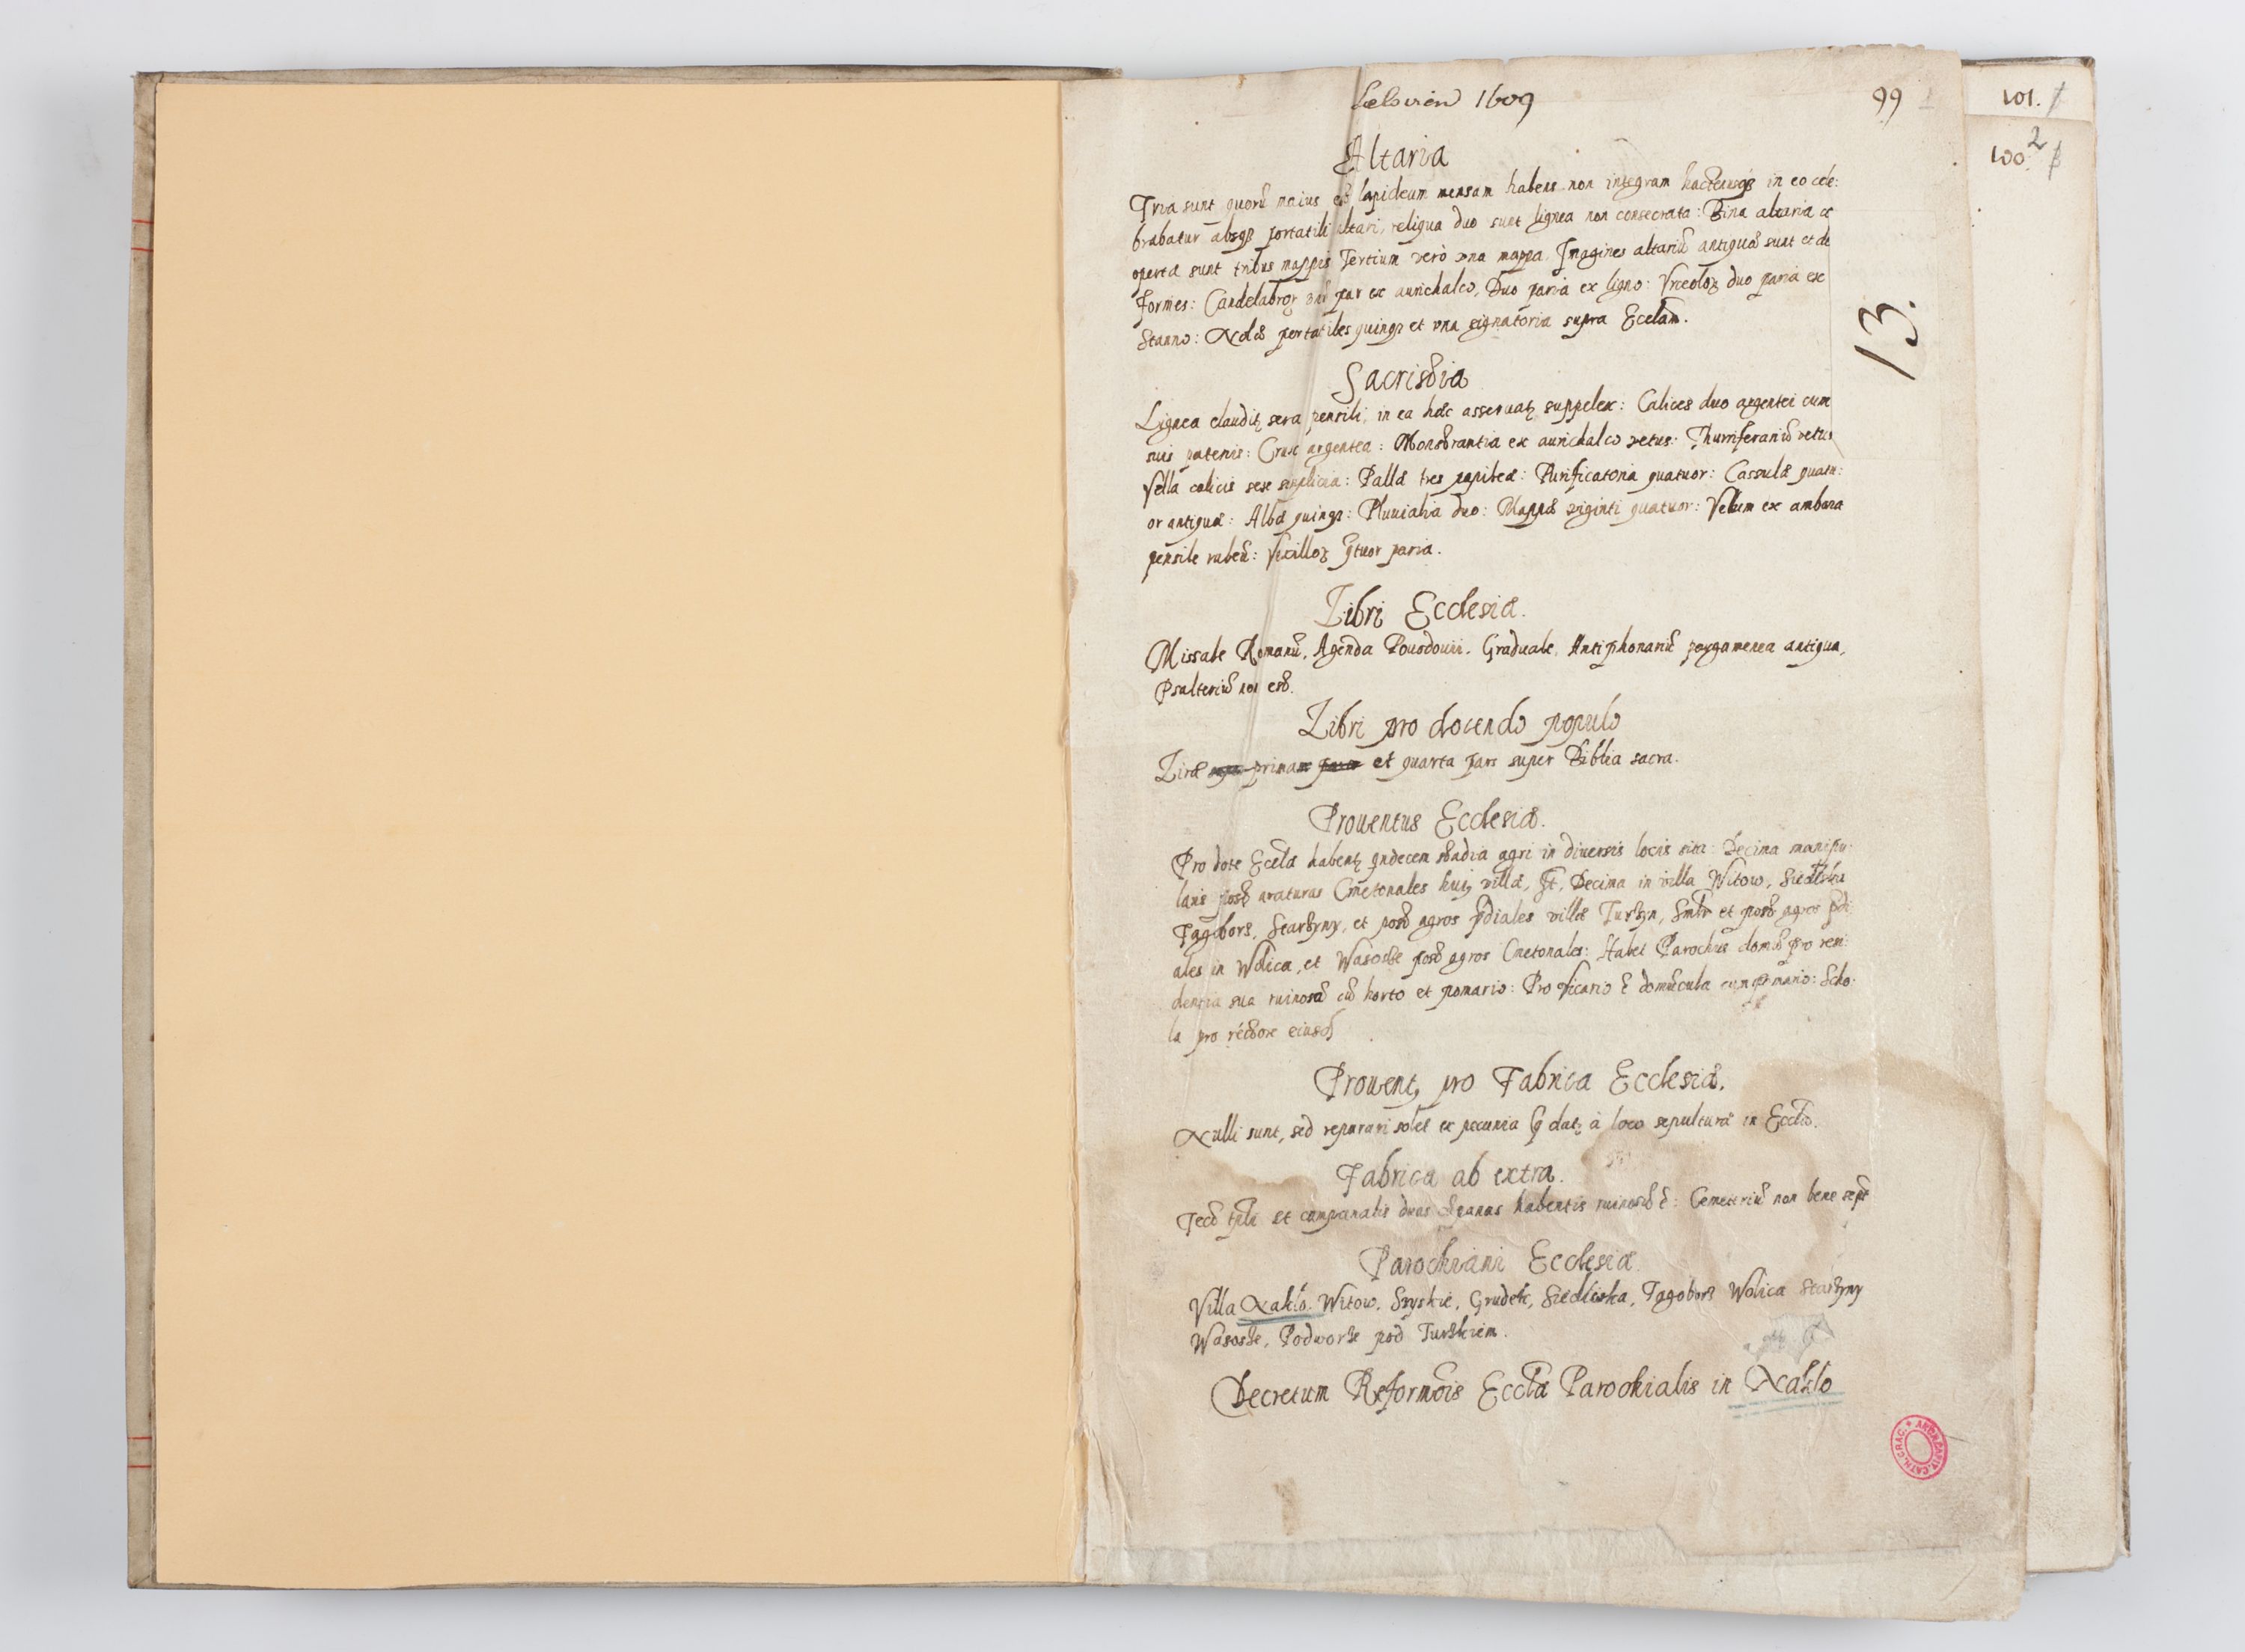 Lelovien 1609
99
101.
100. 2
13.
Altaria
Tria sunt quorū maius est lapideum mensam habens non integram hactenusq́ in eo cele:
brabatur absq́ portatili altari, reliqua duo sunt lignea non consecrata: Bina altaria co
operta sunt tribus mappis Tertium verò vna mappa. Imagines altariū antiquæ sunt et de
formes: Candelabroꝝ vnū par ex aurichalco, Duo paria ex ligno: Vrceoloꝝ duo paria ex
Stanno: Nolæ portatiles quinqꝫ et vna signatoria supra Ecclam̄.
Sacristia
Lignea claudit̃ sera pensili, in ea hæc asseruat̃ suppelex: Calices duo argentei cum
suis patenis: Crux argentea: Monstrantia ex aurichalco vetus: Thurriferariū vetus
Vella calicis sex simplicia: Pallæ tres papiteæ: Purificatoria quatuor: Cassulæ quatu:
or antiquæ: Albæ quinqꝫ: Pluuialia duo: Mappæ viginti quatuor: Velum ex ambara
pensile rubeū: Vexilloꝝ q̄tuor paria.
Libri Ecclesiæ.
Missale Romanū, Agenda Pouodouii. Graduale, Antiphonariū pergamenea antiqua,
Psalteriū non est.
Libri pro docendo populo
Liræ prima et quarta pars super Biblia sacra.
Prouentus Ecclesiæ.
Pro dote Eccłæ habent̃ q̄ndecem stadia agri in diuersis locis siti: Decima manipu:
laris post araturas Cmetonales huiꝰ villæ, It, Decima in villa Witow, Siedliska
Tagoborz, Starzyny, et post agros p̄diales villæ Turzyn, et post agros p̄di
ales in Wolica, et Wasosze post agros Cmetonales: Habet Parochus domū pro resi:
dentia sua ruinosā cū horto et pomario: Pro Vicario ē domūcula cum pomario: Scho:
la pro rectore eiusd̃
Prouentꝰ pro Fabrica Ecclesiæ.
Nulli sunt, sed reparari solet ex pecunia q̄ dat̃ à loco sepulturæ in Eccłia.
Fabrica ab extra.
Tectū tp̄li et campanalis duas c̄panas habentis ruinosū ē: Cemeteriū non bene sept̄
Parochiani Ecclesiæ.
Villa Nakło. Witow, Sryskie, Grudek, Siedliska, Tagoborz Wolica Starzyny
Wasosze, Podworze pod Turzkiem.
Decretum Reformōis Eccłæ Parochialis in Nakło